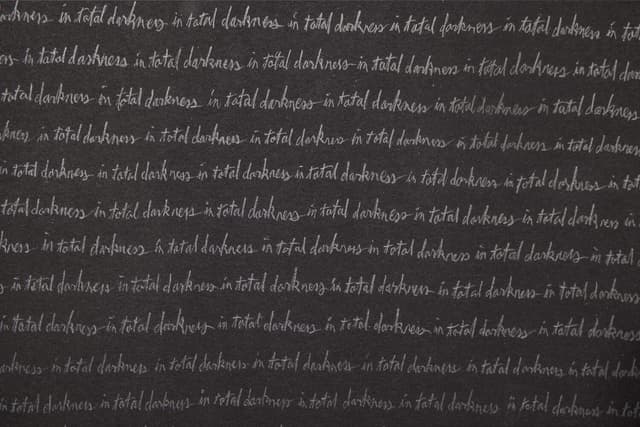 arkness in total darkness in total darkness in total darkness in total darkness in total darkness in tot
ss in total darkness in total darkness in total darkness in total darkness in total darkness in total dar
total darkness in total darkness in total darkness in total darkness in total darkness in total darkness
kness in total darkness in total darkness in total darkness in total darkness in total darkness in total darkness
in total darkness in total darkness in total darkness in total darkness in total darkness in total darkness in tot
total darkness in total darkness in total darkness in total darkness in total darkness in total darkness in
kness in total darkness in total darkness in total darkness in total darkness in total darkness in total
s in total darkness in total darkness in total darkness in total darkness in total darkness in total darkness
in total darkness in total darkness in total darkness in total darkness in total darkness in total darkness
arkness in total darkness in total darkness in total darkness in total darkness in total darkness in total darkness
in total darkness in total darkness in total darkness in total darkness in total darkness in total darkness in total